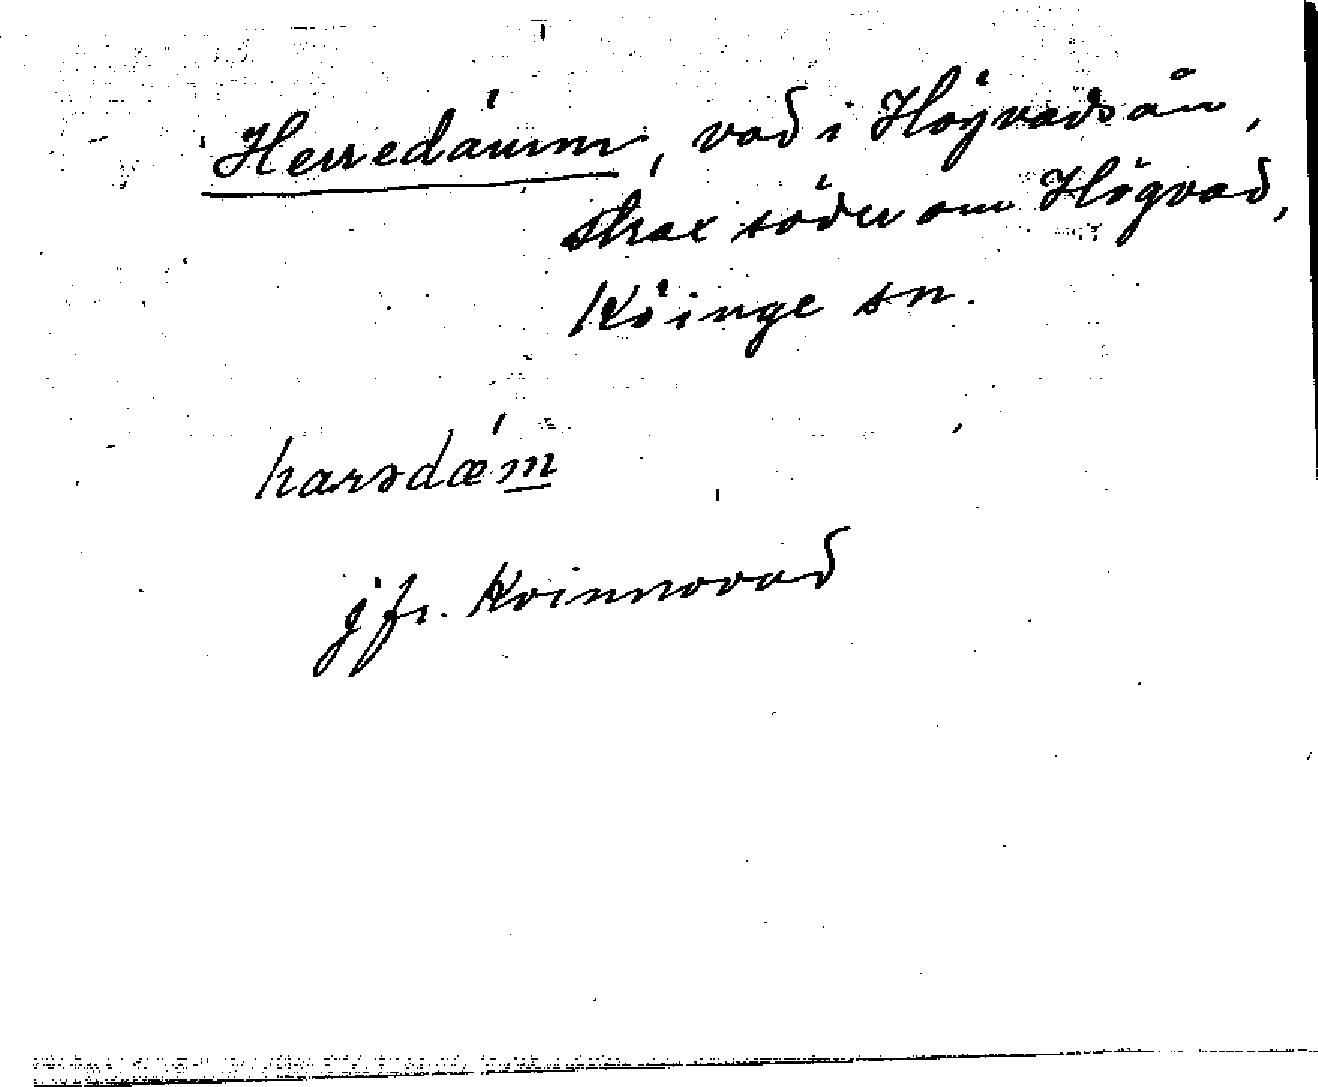 Herredámm, vad i Högvadsån,
strax söder om Högvad,
Köinge sn.
harədæ´m
jfr. Kvinnovad